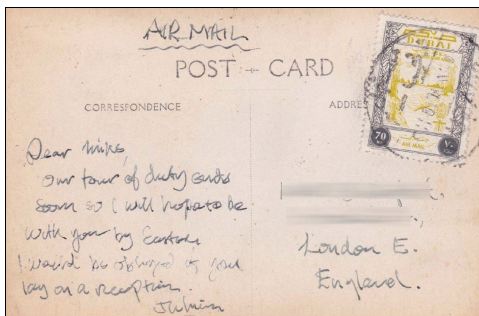 AIR MAIL
POST CARD
CORRESPONDENCE
ADDRES
DUBAI
70
٧٠
AIR MAIL
Dear
our tour of duty ends
soon so I will hope to be
with you by Easter.
I would be obliged if you'd
lay on a reception.
Julian
London E.
England.